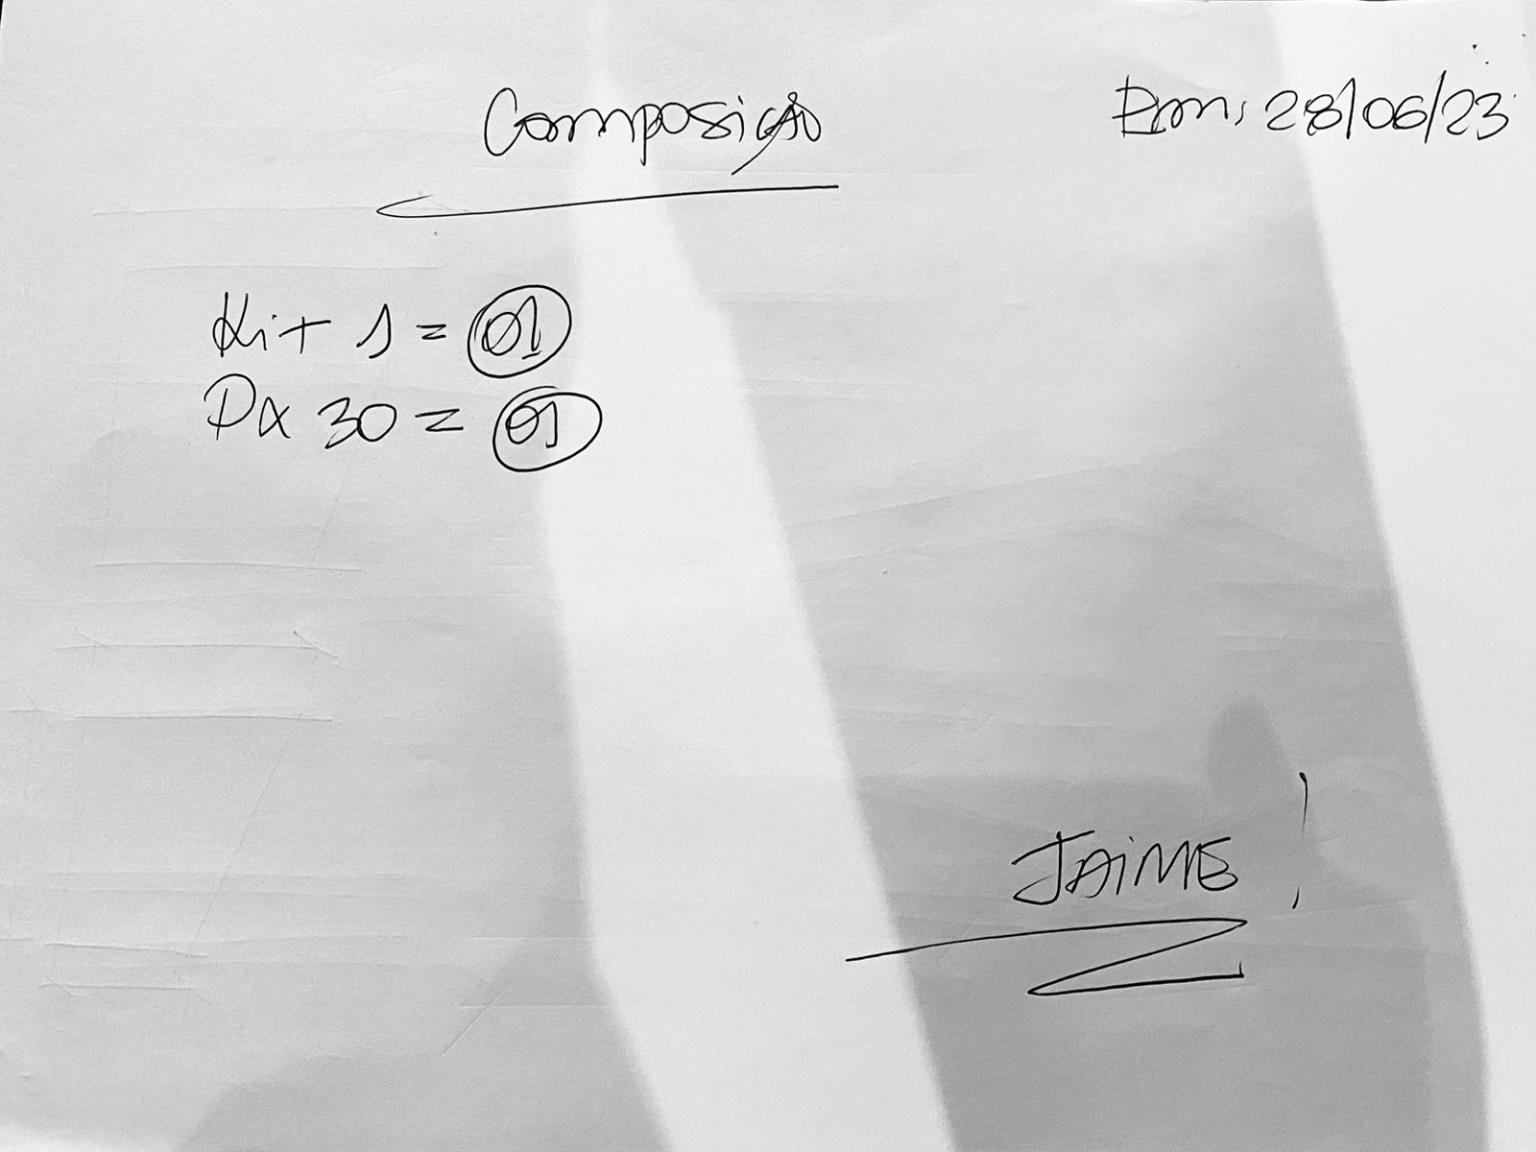 Composição
Em, 28/06/23
Kit 1 = 01
Px 30 = 01
JAIME!